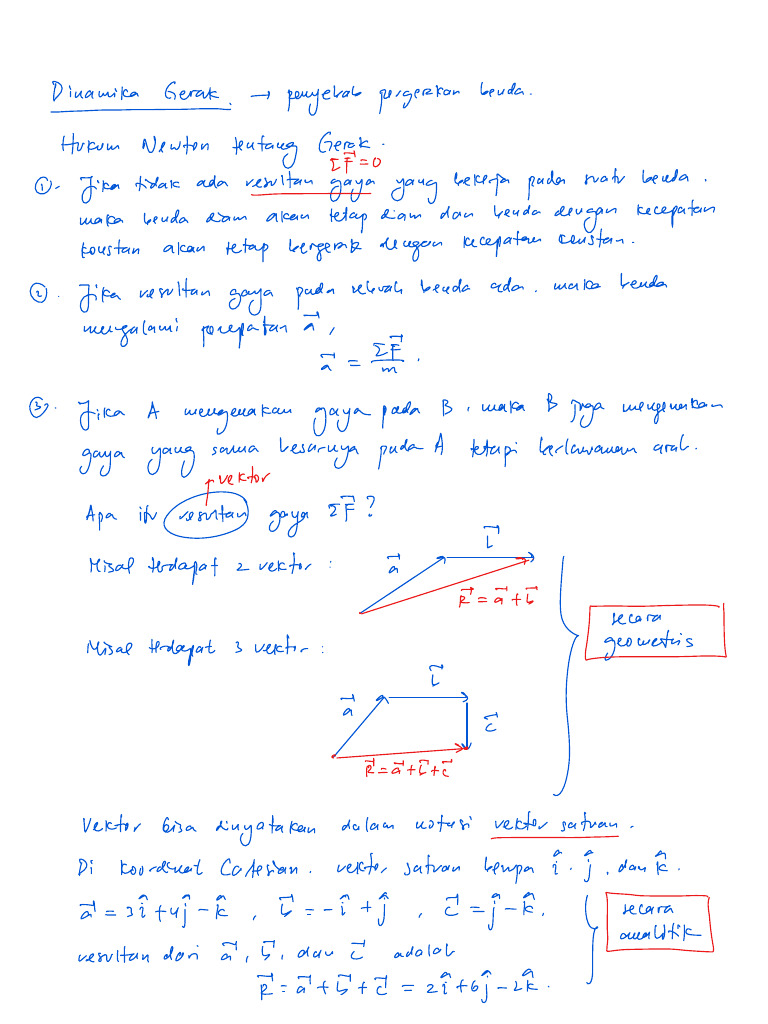 Dinamika Gerak. → penyebab pergerakan benda.
Hukum Newton tentang Gerak.
ΣF⃗ = 0
①. Jika tidak ada resultan gaya yang bekerja pada suatu benda.
maka benda diam akan tetap diam dan benda dengan kecepatan
konstan akan tetap bergerak dengan kecepatan constan.
②. Jika resultan gaya pada sebuah benda ada. maka benda
mengalami percepatan a⃗,
a⃗ = ΣF⃗/m.
③. Jika A mengenakan gaya pada B, maka B juga mengenakan
gaya yang sama besarnya pada A tetapi berlawanan arah.
→ vektor
Apa itu resultan gaya ΣF⃗?
Misal terdapat 2 vektor:
a⃗
b⃗
R⃗ = a⃗ + b⃗
secara
geometris
Misal terdapat 3 vektor:
a⃗
b⃗
c⃗
R⃗ = a⃗ + b⃗ + c⃗
Vektor bisa dinyatakan dalam notasi vektor satuan.
Di koordinat Cartesian. vektor satuan berupa î, ĵ, dan k̂.
a⃗ = 3î + 4ĵ − k̂, b⃗ = −î + ĵ, c⃗ = ĵ − k̂.
secara
analitik
resultan dari a⃗, b⃗, dan c⃗ adalah
R⃗ = a⃗ + b⃗ + c⃗ = 2î + 6ĵ − 2k̂.